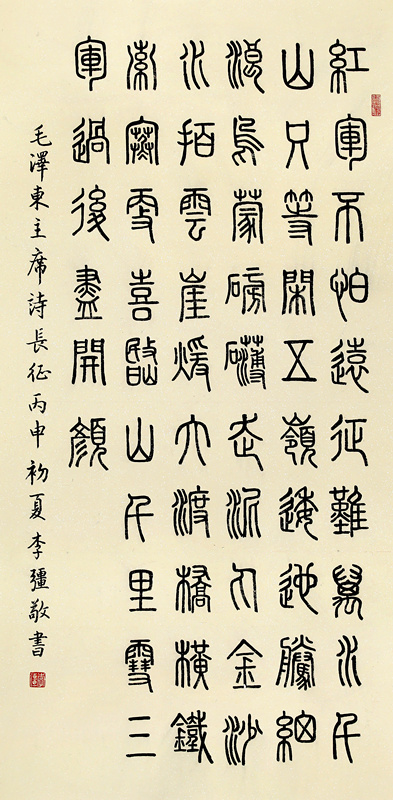 紅軍不怕遠征難萬水千
山只等閑五嶺逶迤騰細
浪烏蒙磅礴走泥丸金沙
水拍雲崖暖大渡橋橫鐵
索寒更喜岷山千里雪三
軍過後盡開顏
毛澤東主席詩長征丙申初夏李疆敬書